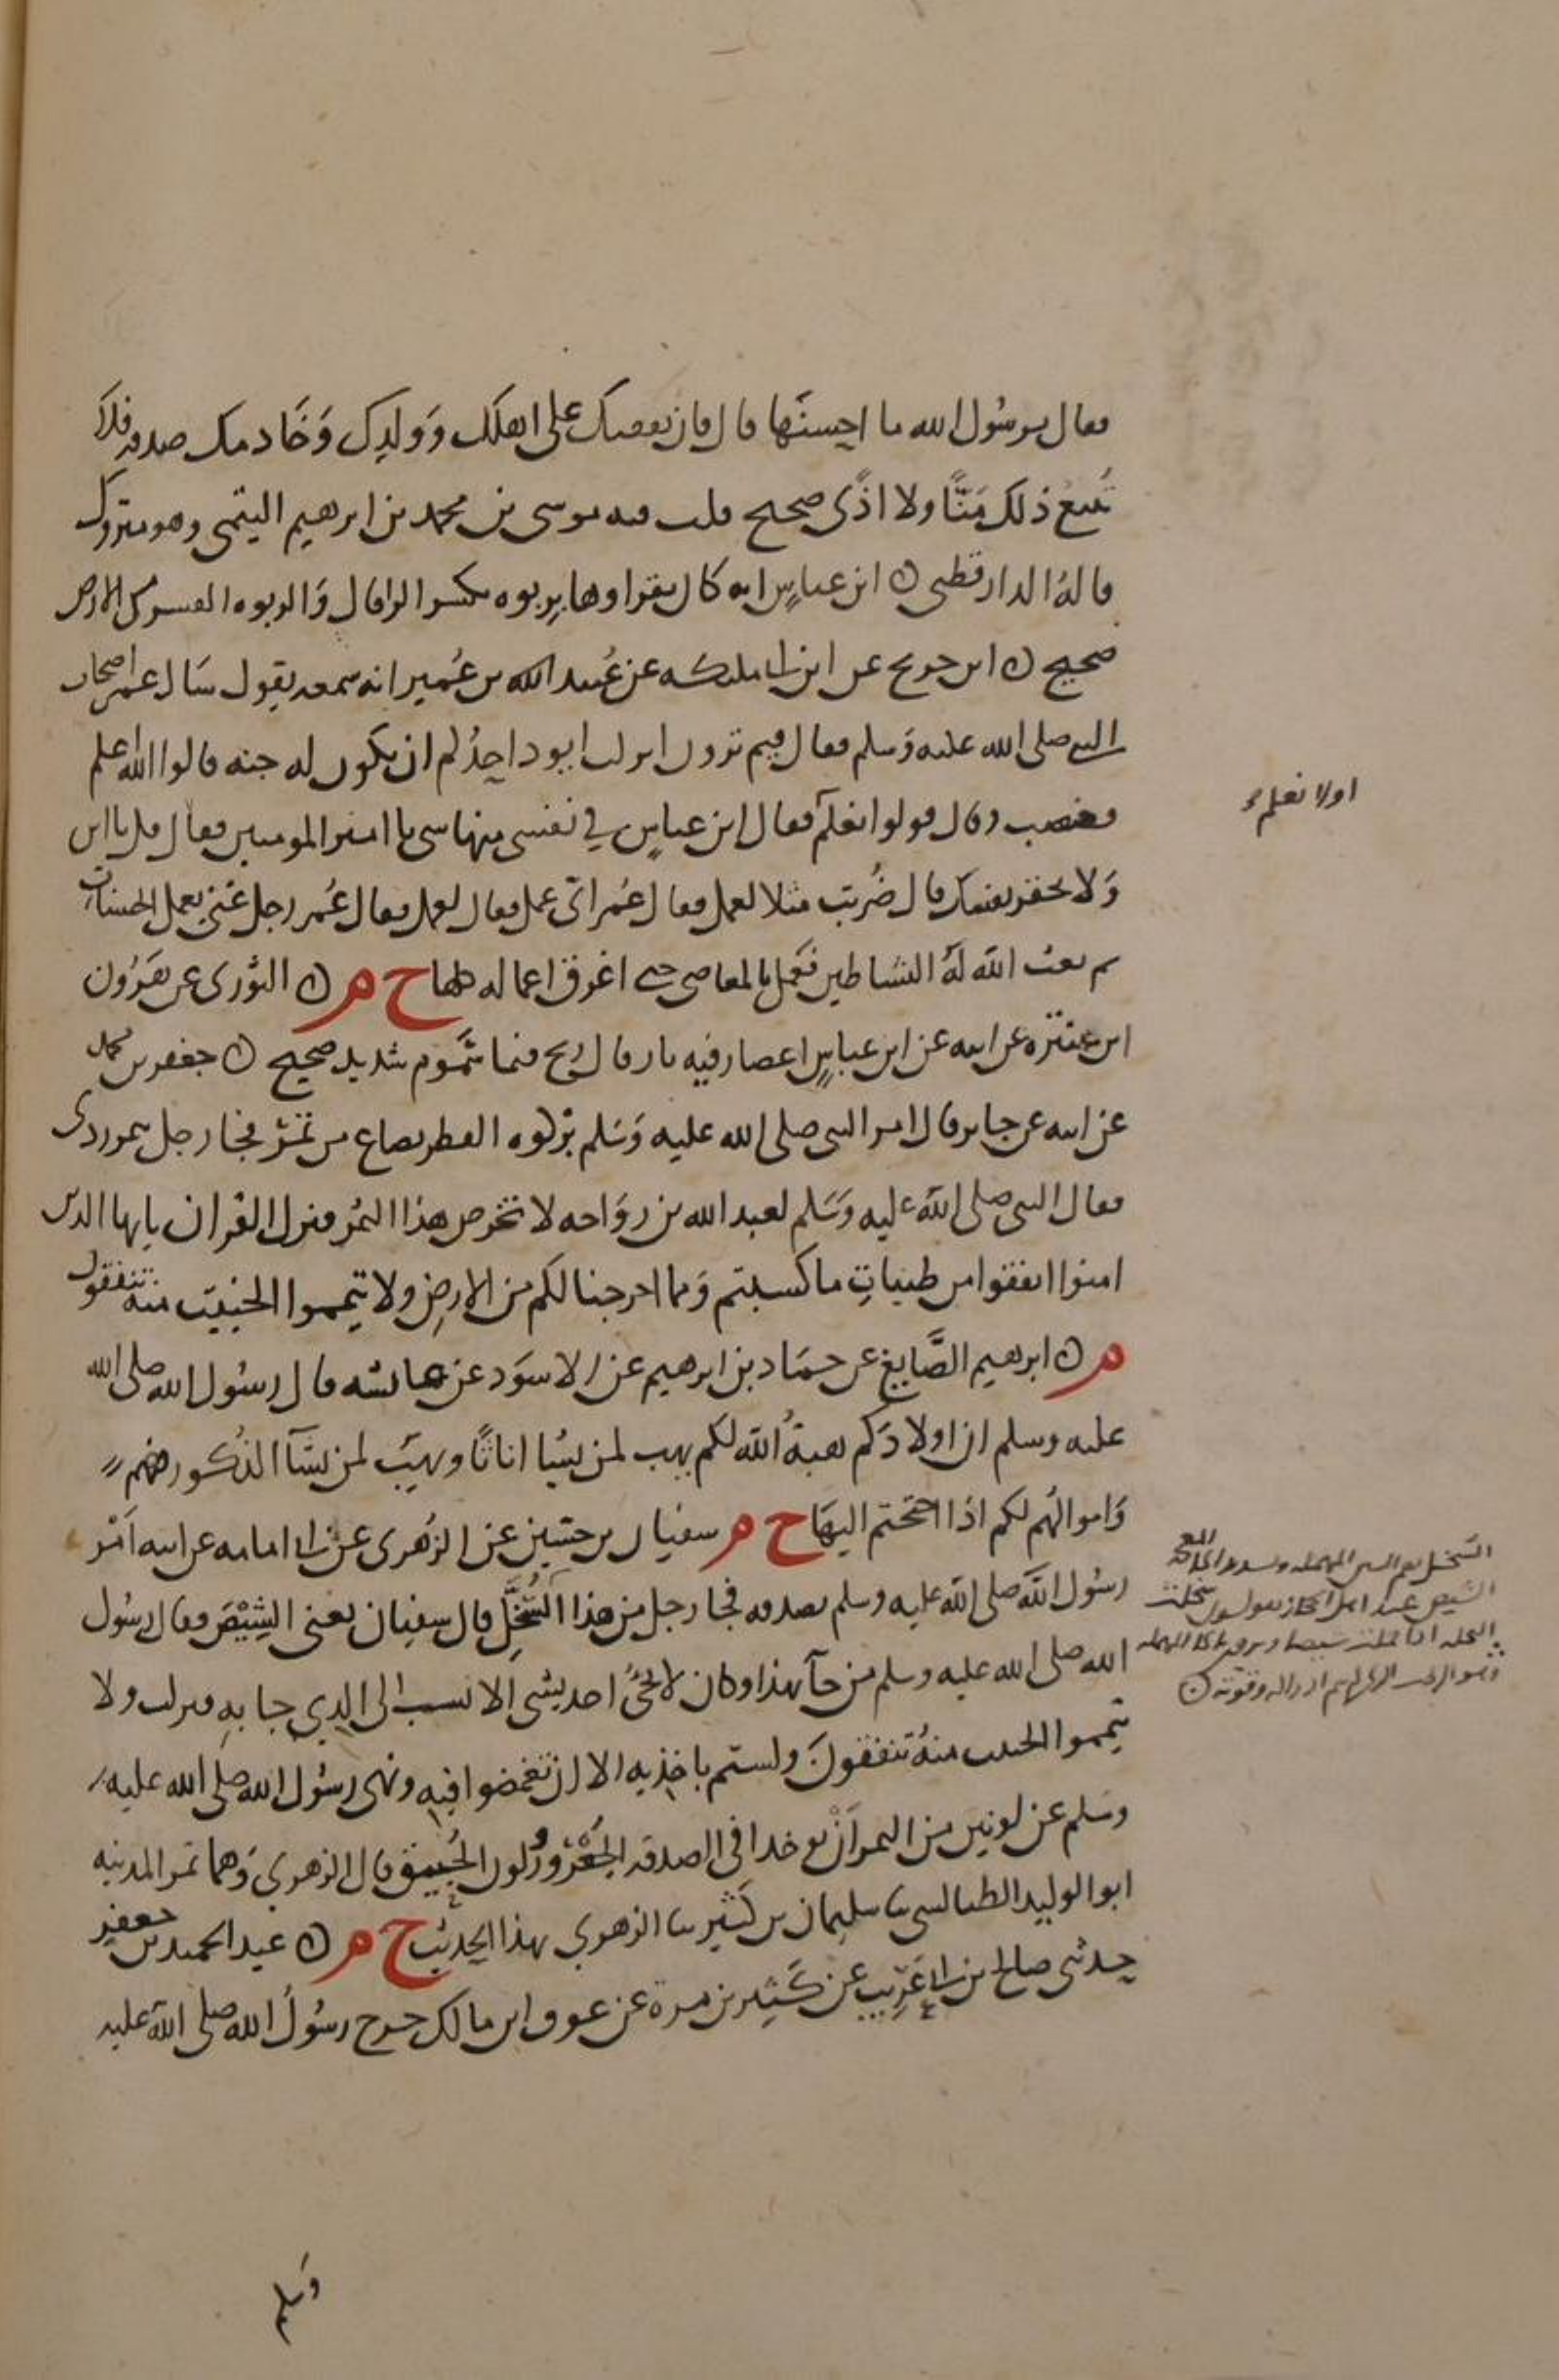 فقال يرسول الله ما احسنها قال فان نفقتك على اهلك وولدك وخادمك صدقه فلا
تتبع ذلك منّا ولا اذًى صحيح قلت فيه موسى بن محمد بن ابرهيم التيمى وهو متروك
قاله الدارقطى ن ابن عباس انه كان يقراوها بربوه بكسر الرا قال والربوه النشز من الارض
صحيح ن ابن جريج عن ابن ابى مليكه عن عُبيد الله بن عُمير انه سمعه يقول سال عمر اصحاب
النبى صلى الله عليه وسلم فقال فيم ترون انزلت ايود احدكم ان تكون له جنه قالوا الله اعلم
فغضب وقال قولوا نعلم فقال ابن عباس في نفسى منها شى يا امير المومنين فقال قل يا ابن
ولا تحقر نفسك قال ضُربت مثلا لعمل فقال عُمر اى عمل فقال لعمل فقال عُمر رجل غنى يعمل الحسنات
ثم بعث الله له الشياطين فعمل بالمعاصى حتى اغرق اعماله كلها خ م ن الثورى عن هرون
ابن عنتره عن ابيه عن ابن عباس اعصار فيه نار قال ريح فيها سموم شديد صحيح ن جعفر بن محمد
عن ابيه عن جابر قال امر النبى صلى الله عليه وسلم بزكوه الفطر بصاع من تمر فجا رجل بتمر ردى
فقال النبى صلى الله عليه وسلم لعبد الله بن رواحه لا تخرص هذا التمر فنزل القران يايها الذين
امنوا انفقوا من طيبات ما كسبتم ومما اخرجنا لكم من الارض ولا تيمموا الخبيث منه تنفقون
م ن ابرهيم الصَّايغ عن حماد بن ابرهيم عن الاسود عن عائشه قال رسول الله صلى الله
عليه وسلم ان اولادكم هبةُ الله لكم يهب لمن يشا اناثًا ويهب لمن يشآ الذكور فهم
واموالهُم لكم اذا احتجتم اليها خ م سفيان بن حسين عن الزهرى عن ابى امامه عن ابيه امر
رسول الله صلى الله عليه وسلم بصدقه فجا رجل من هذا السُّخَّل قال سفيان يعنى الشِيْصَ فقال رسول
الله صلى الله عليه وسلم من جآ بهذا وكان لا يجىُ احد بشى الا نسب الى الذي جا به فنزلت ولا
تيمموا الخبيث منهُ تنفقونَ ولستم باخذيه الا ان تغمضوا فيه ونهى رسول الله صلى الله عليه
وسلم عن لونين من التمر ان يوخذا فى الصدقه الجُعْرُور ولون الحُبيق قال الزهري وهما تمر المدينه
ابو الوليد الطيالسى ثنا سليمان بن كثير ثنا الزهري بهذا الحديث خ م ن عبد الحميد بن جعفر
حدثنى صالح بن ابى عَرِيب عن كَثير بن مرة عن عوف ابن مالك خرج رسولُ الله صلى الله عليه
وسلم
اولا نعلم
السُّخَّل بضم السين المهمله وتشديد الخا المعجمه
الشيص عند اهل الحجاز يقولون سخلت
النخله اذا حملت شيصا